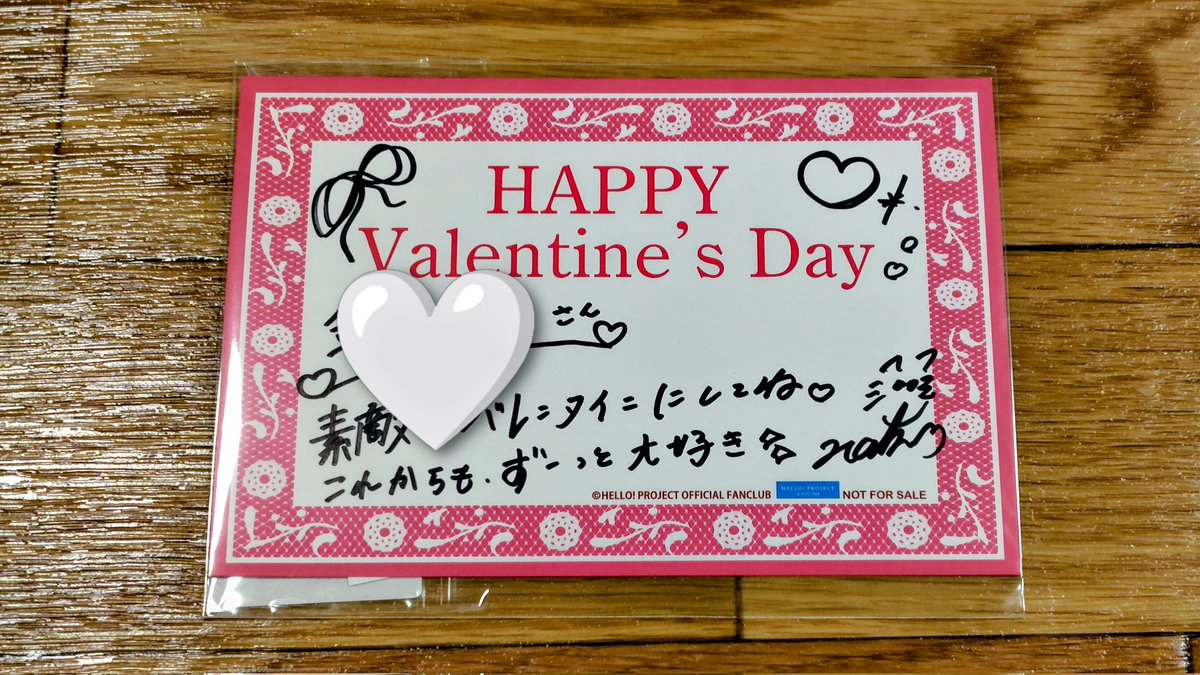 HAPPY
Valentine's Day
さん
素敵 バレンタインにしてね♡
これからも、ずーっと大好き
©HELLO! PROJECT OFFICIAL FANCLUB HELLO! PROJECT NOT FOR SALE